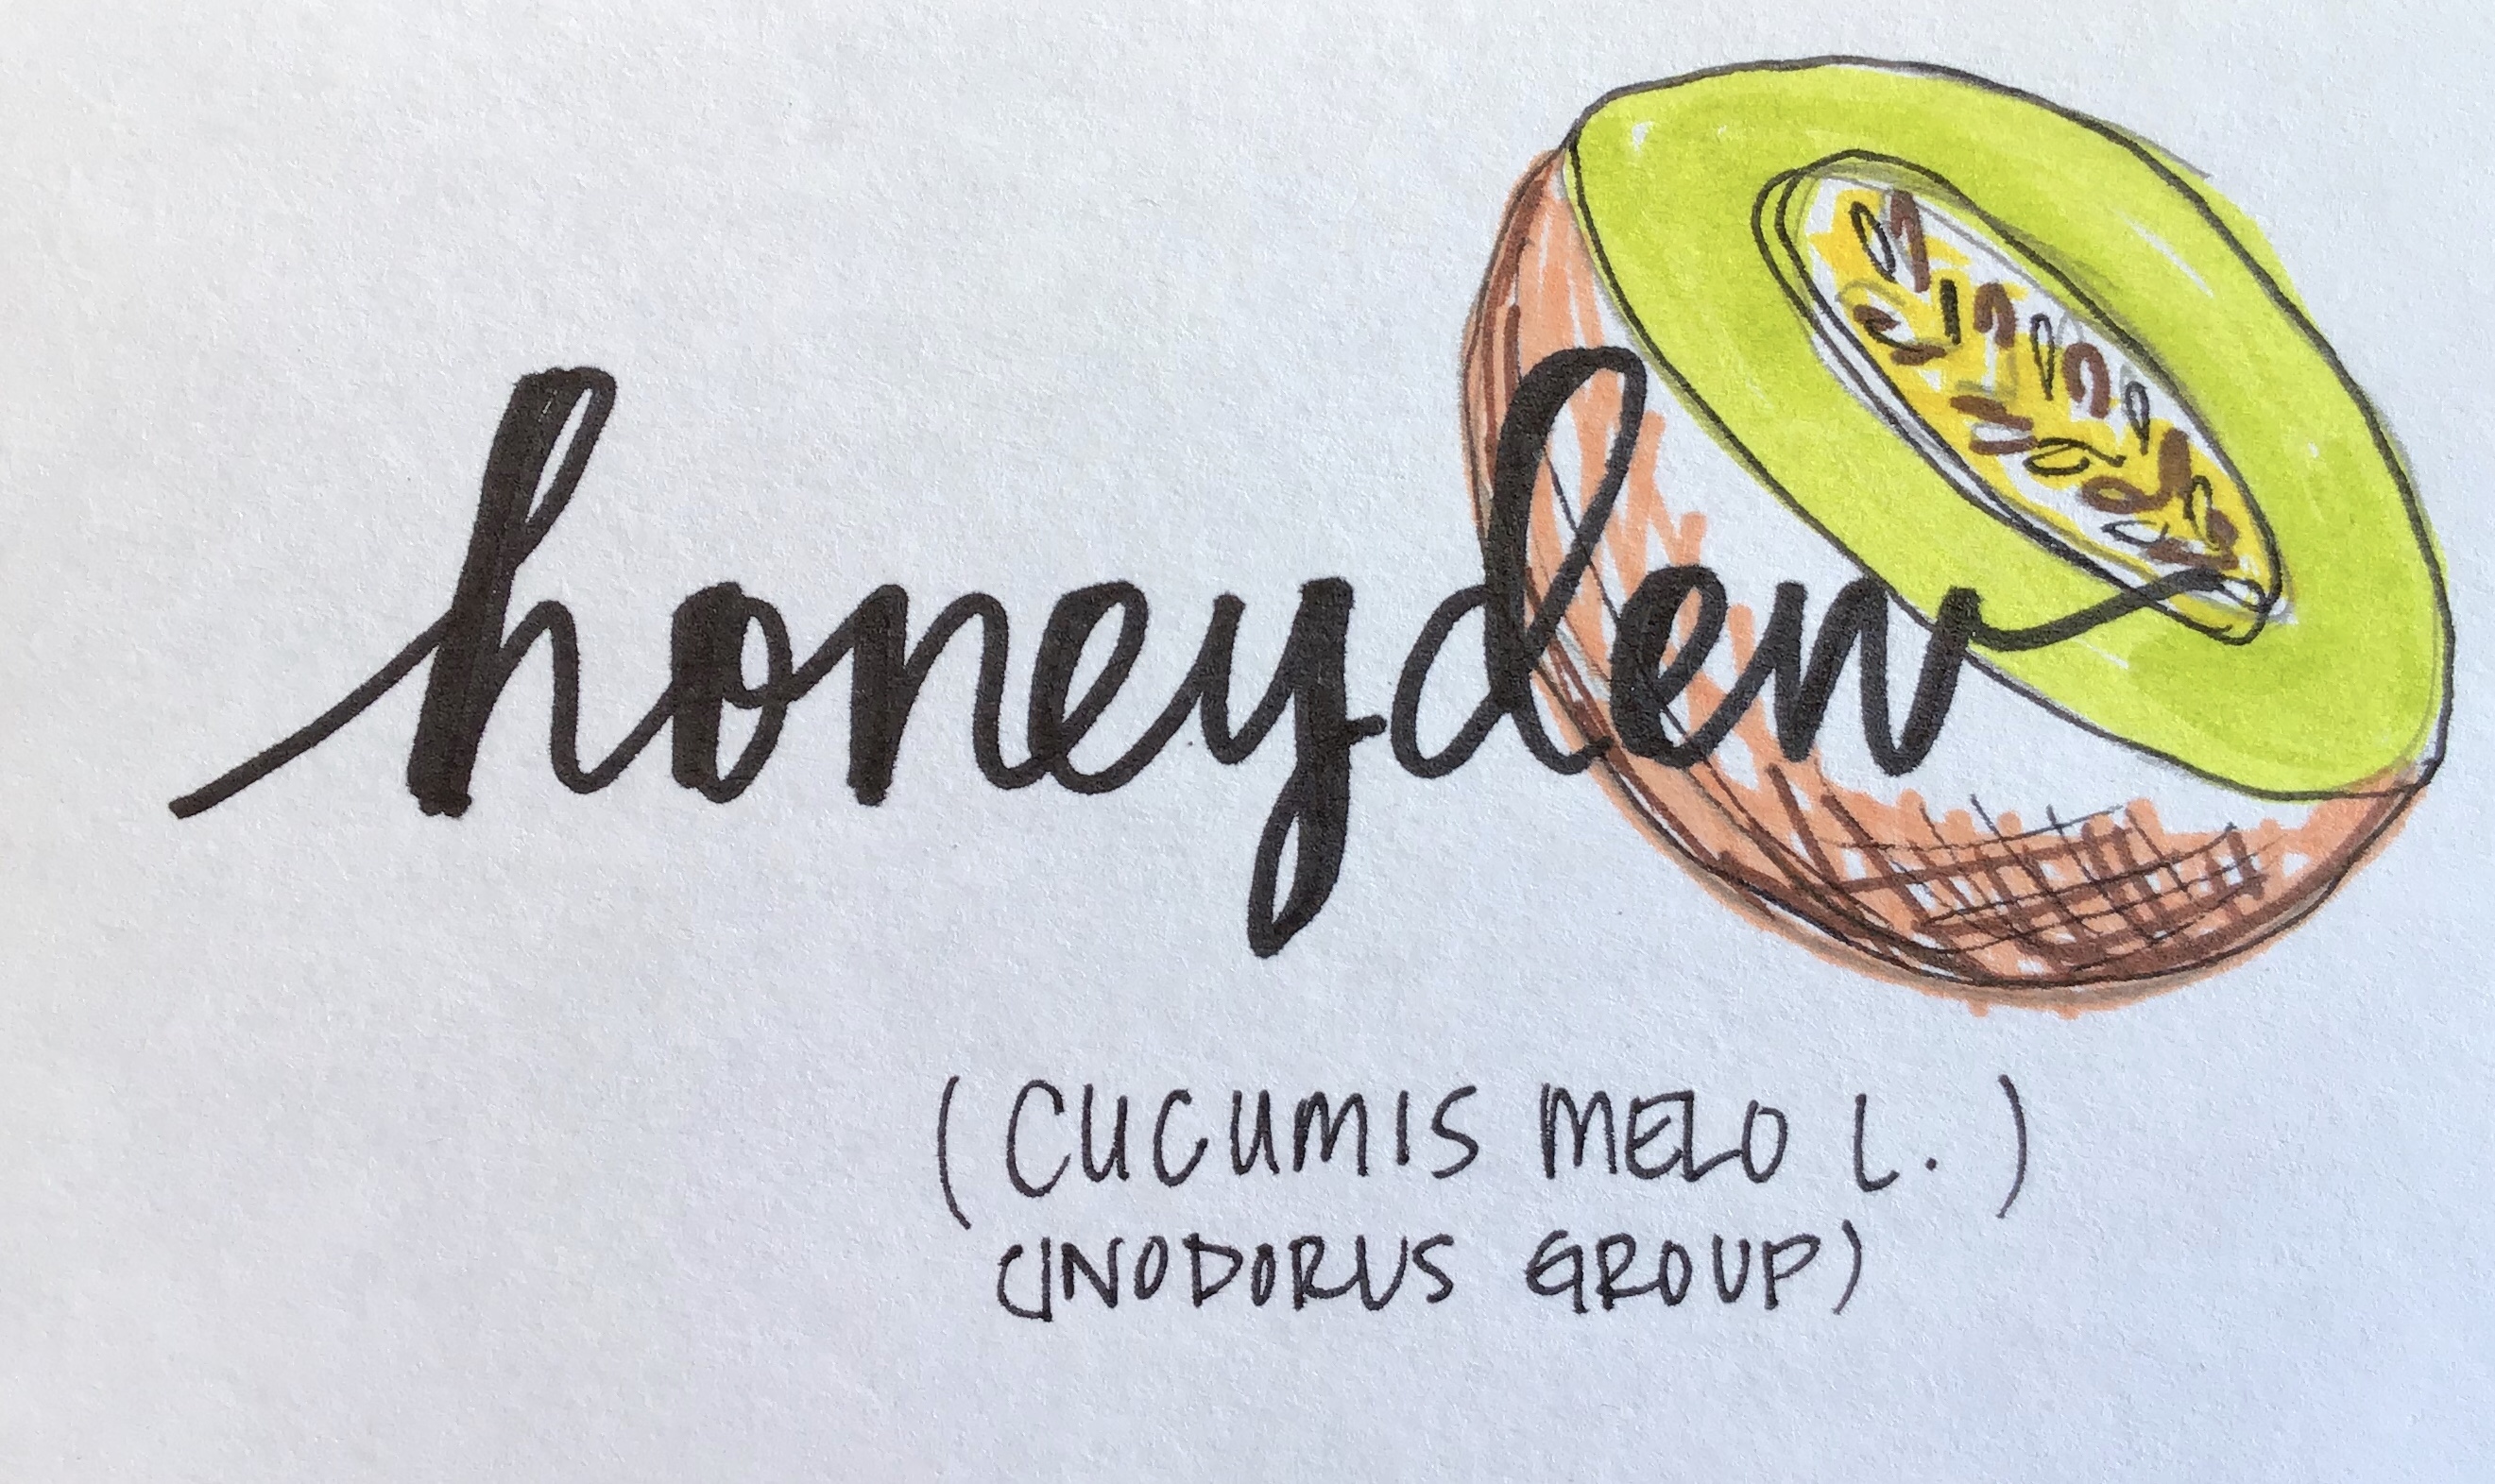 honeydew
(CUCUMIS MELO L.)
(INODORUS GROUP)